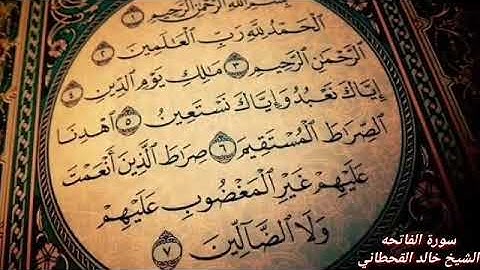 بِسْمِ ٱللَّهِ ٱلرَّحْمَٰنِ ٱلرَّحِيمِ ١
ٱلْحَمْدُ لِلَّهِ رَبِّ ٱلْعَٰلَمِينَ ٢
ٱلرَّحْمَٰنِ ٱلرَّحِيمِ ٣ مَٰلِكِ يَوْمِ ٱلدِّينِ ٤
إِيَّاكَ نَعْبُدُ وَإِيَّاكَ نَسْتَعِينُ ٥ ٱهْدِنَا
ٱلصِّرَٰطَ ٱلْمُسْتَقِيمَ ٦ صِرَٰطَ ٱلَّذِينَ أَنْعَمْتَ
عَلَيْهِمْ غَيْرِ ٱلْمَغْضُوبِ عَلَيْهِمْ
وَلَا ٱلضَّآلِّينَ ٧
سورة الفاتحه
الشيخ خالد القحطاني